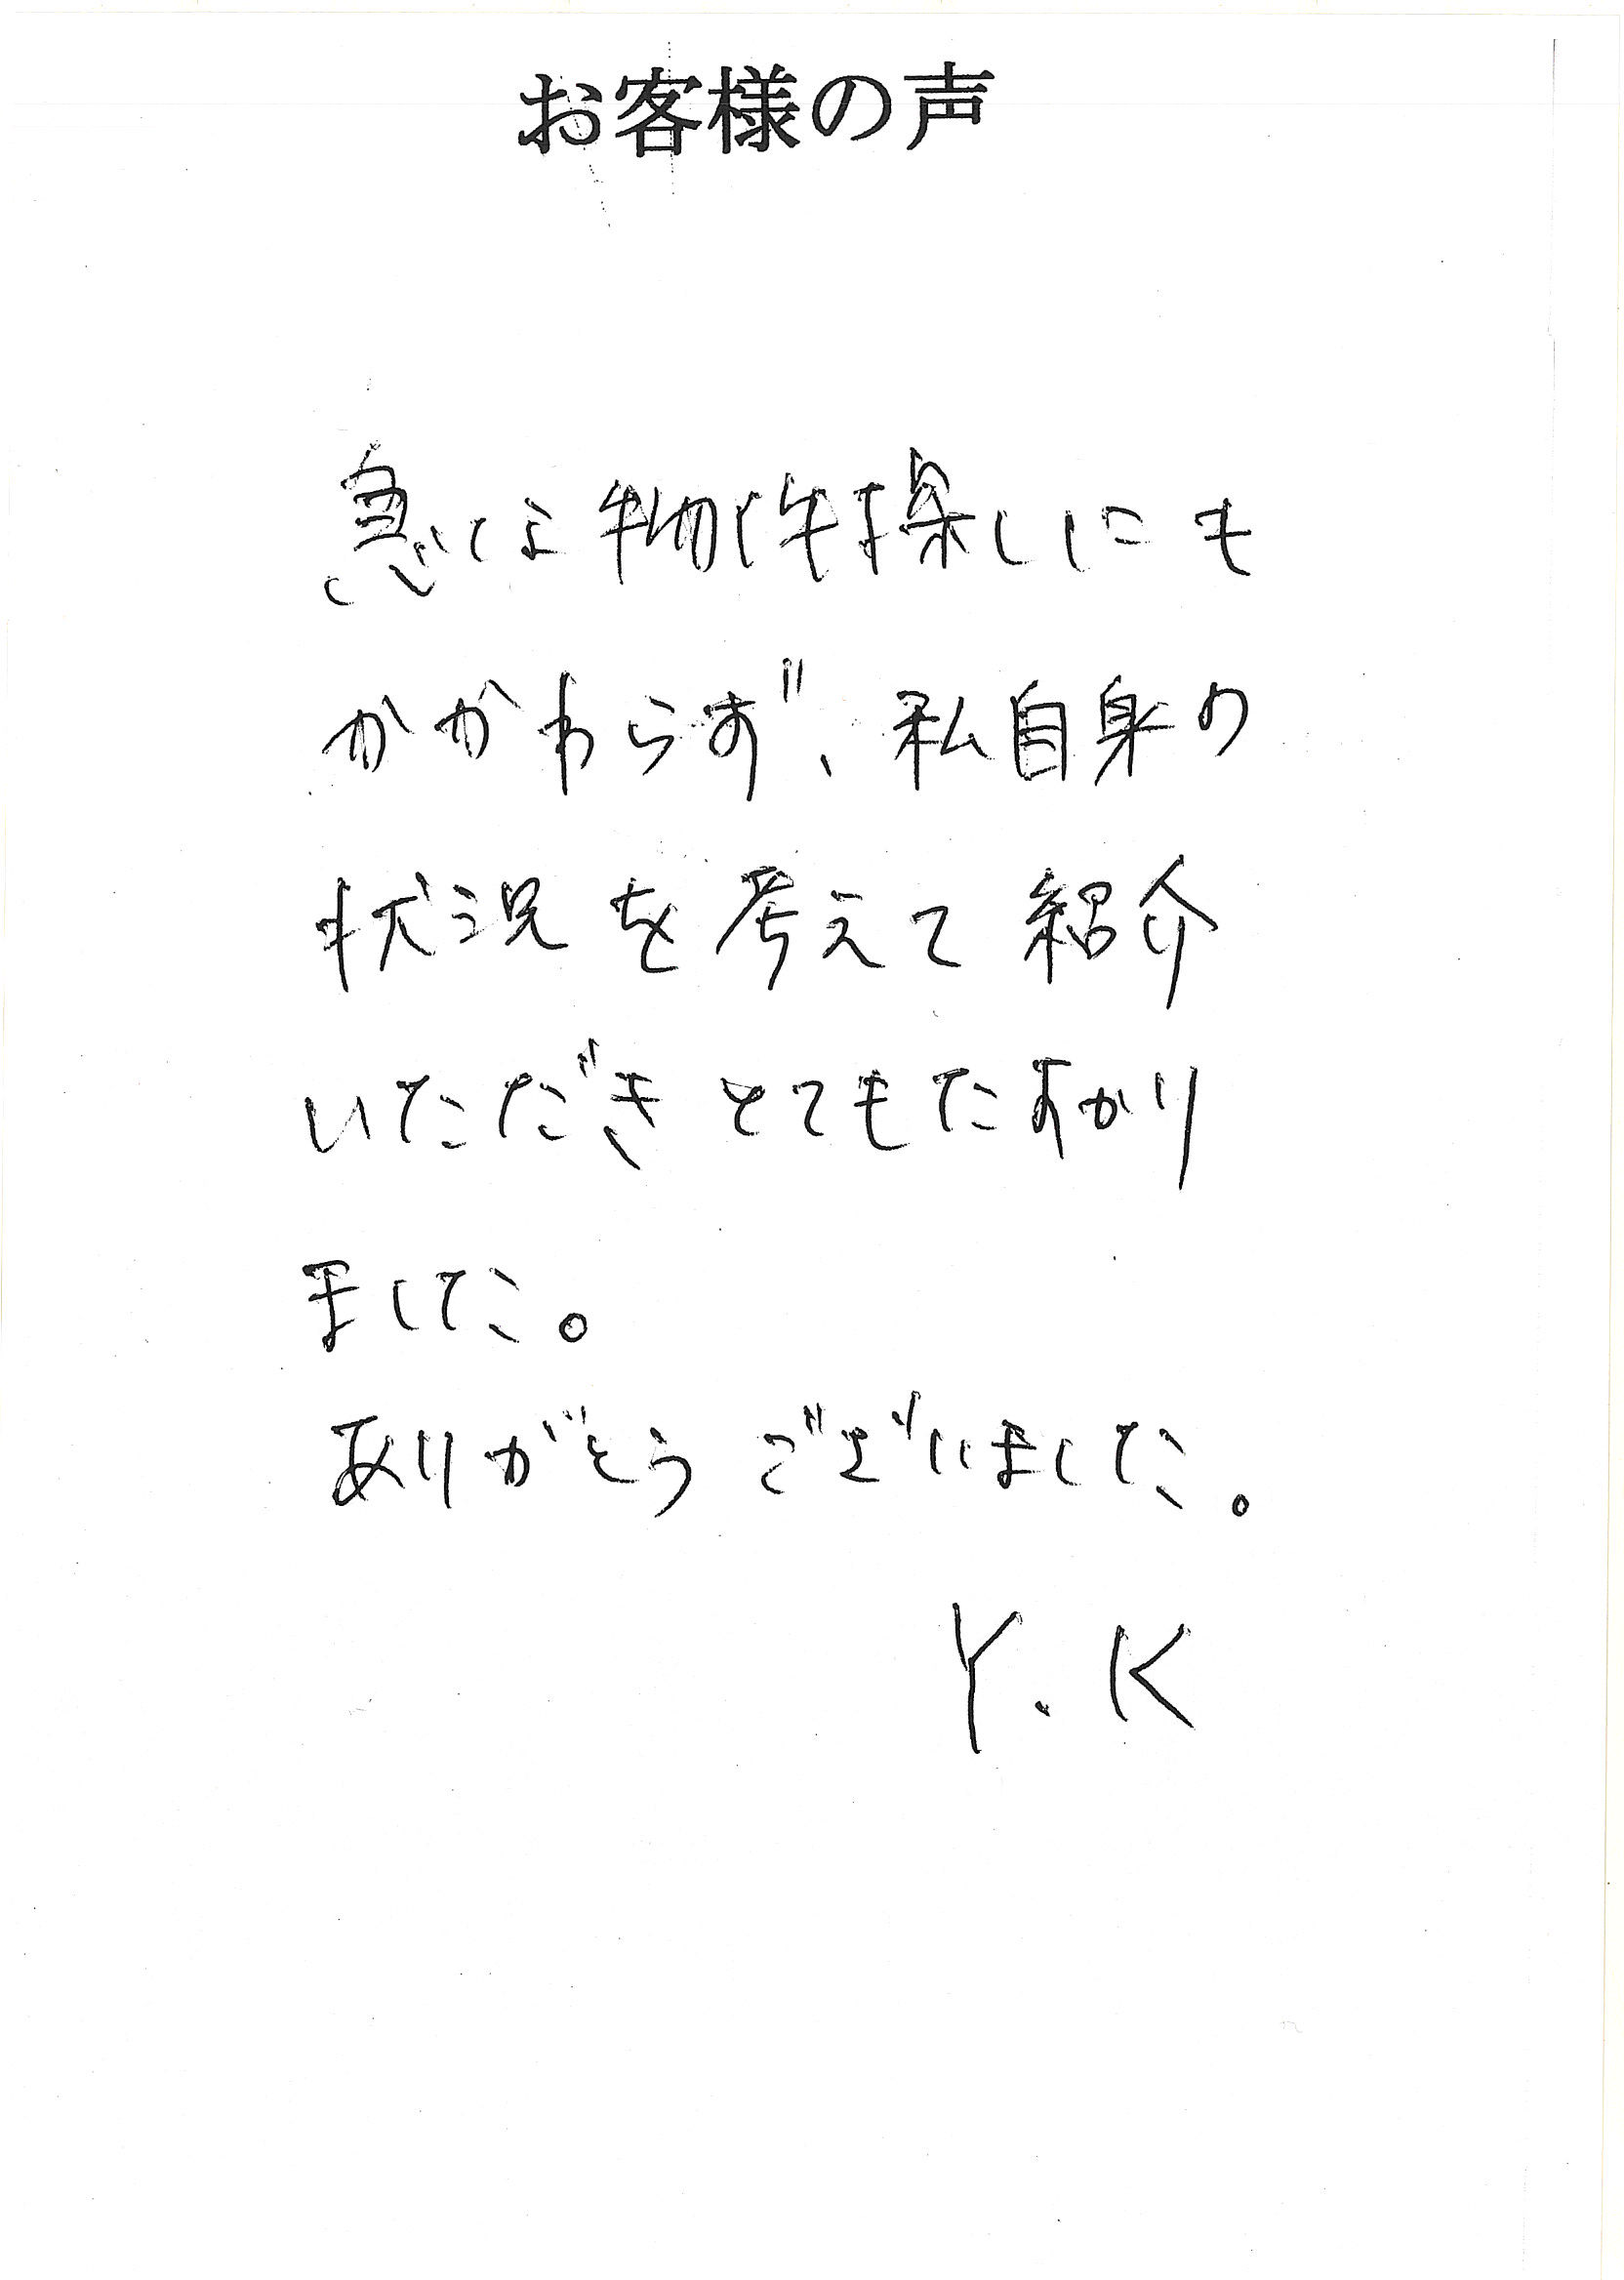 お客様の声
急な物件探しにも
かかわらず、私自身の
状況を考えて紹介
いただきとてもたすかり
ました。
ありがとうございました。
Y.K